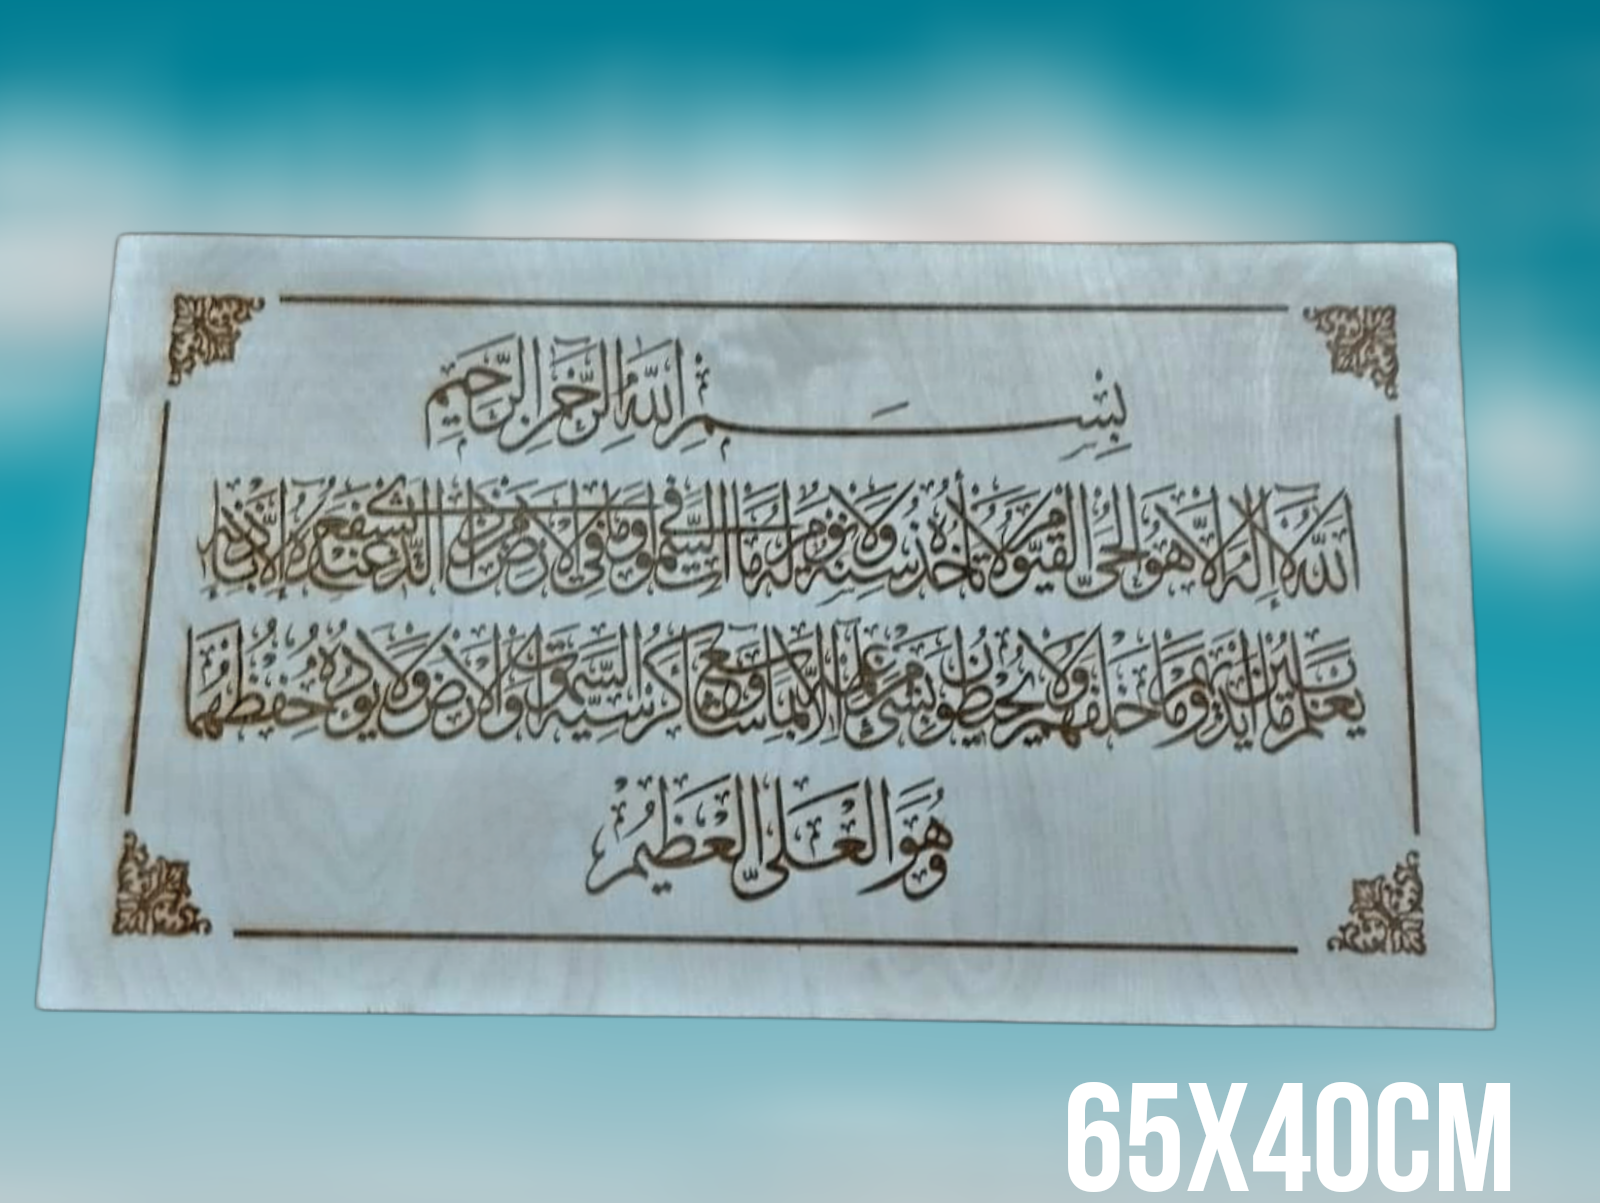 بِسْمِ اللَّهِ الرَّحْمَٰنِ الرَّحِيمِ
اللَّهُ لَا إِلَٰهَ إِلَّا هُوَ الْحَيُّ الْقَيُّومُ لَا تَأْخُذُهُ سِنَةٌ وَلَا نَوْمٌ لَهُ مَا فِي السَّمَٰوَاتِ وَمَا فِي الْأَرْضِ مَنْ ذَا الَّذِي يَشْفَعُ عِنْدَهُ إِلَّا بِإِذْنِهِ
يَعْلَمُ مَا بَيْنَ أَيْدِيهِمْ وَمَا خَلْفَهُمْ وَلَا يُحِيطُونَ بِشَيْءٍ مِنْ عِلْمِهِ إِلَّا بِمَا شَاءَ وَسِعَ كُرْسِيُّهُ السَّمَٰوَاتِ وَالْأَرْضَ وَلَا يَئُودُهُ حِفْظُهُمَا
وَهُوَ الْعَلِيُّ الْعَظِيمُ
65X40CM